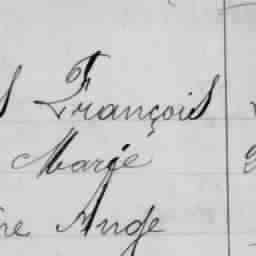 François
Marie
Ange